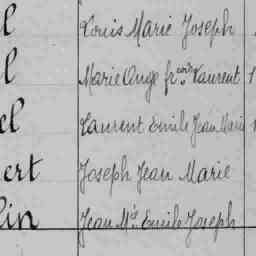 l Louis Marie Joseph
l Marie Ange frçois Laurent 1
el Laurent Emile Jean Marie
ert Joseph Jean Marie
lin Jean Mie Emile Joseph